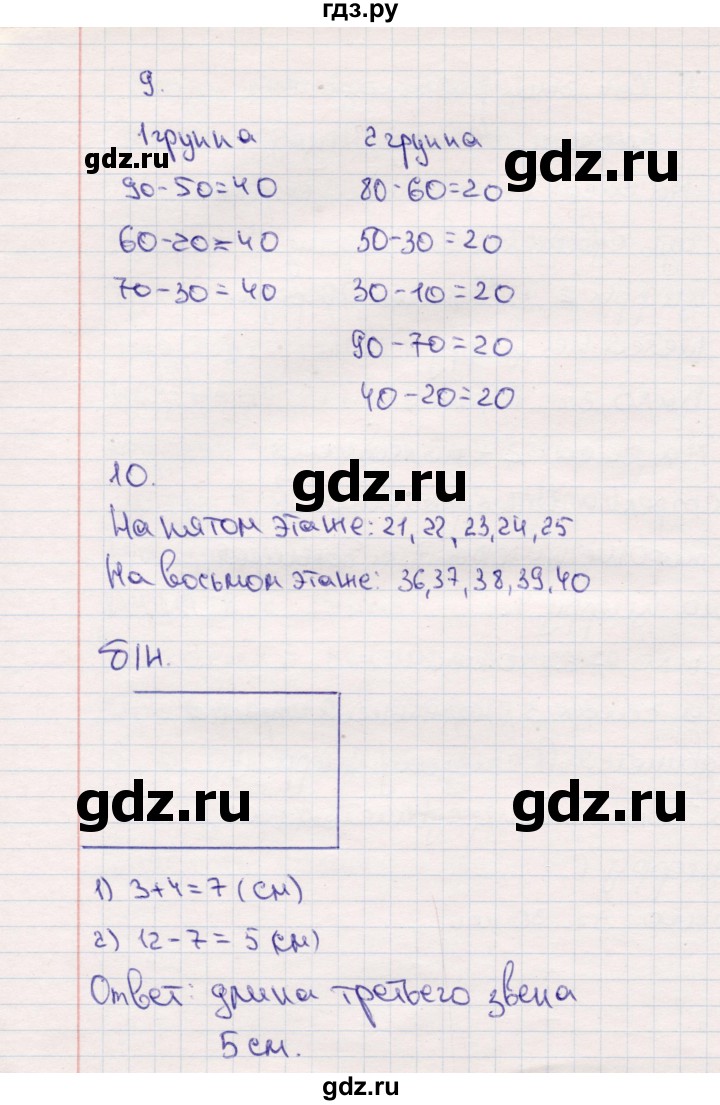 гдз.ру
9.
1 группа 2 группа
gdz.ru gdz.ru
90-50=40 80-60=20
60-20=40 50-30=20
70-30=40 30-10=20
90-70=20
40-20=20
10.
gdz.ru
На пятом этаже: 21, 22, 23, 24, 25
На восьмом этаже: 36, 37, 38, 39, 40
б/н.
gdz.ru gdz.ru
1) 3+4=7 (см)
2) 12-7=5 (см)
Ответ: длина третьего звена
5 см.
gdz.ru